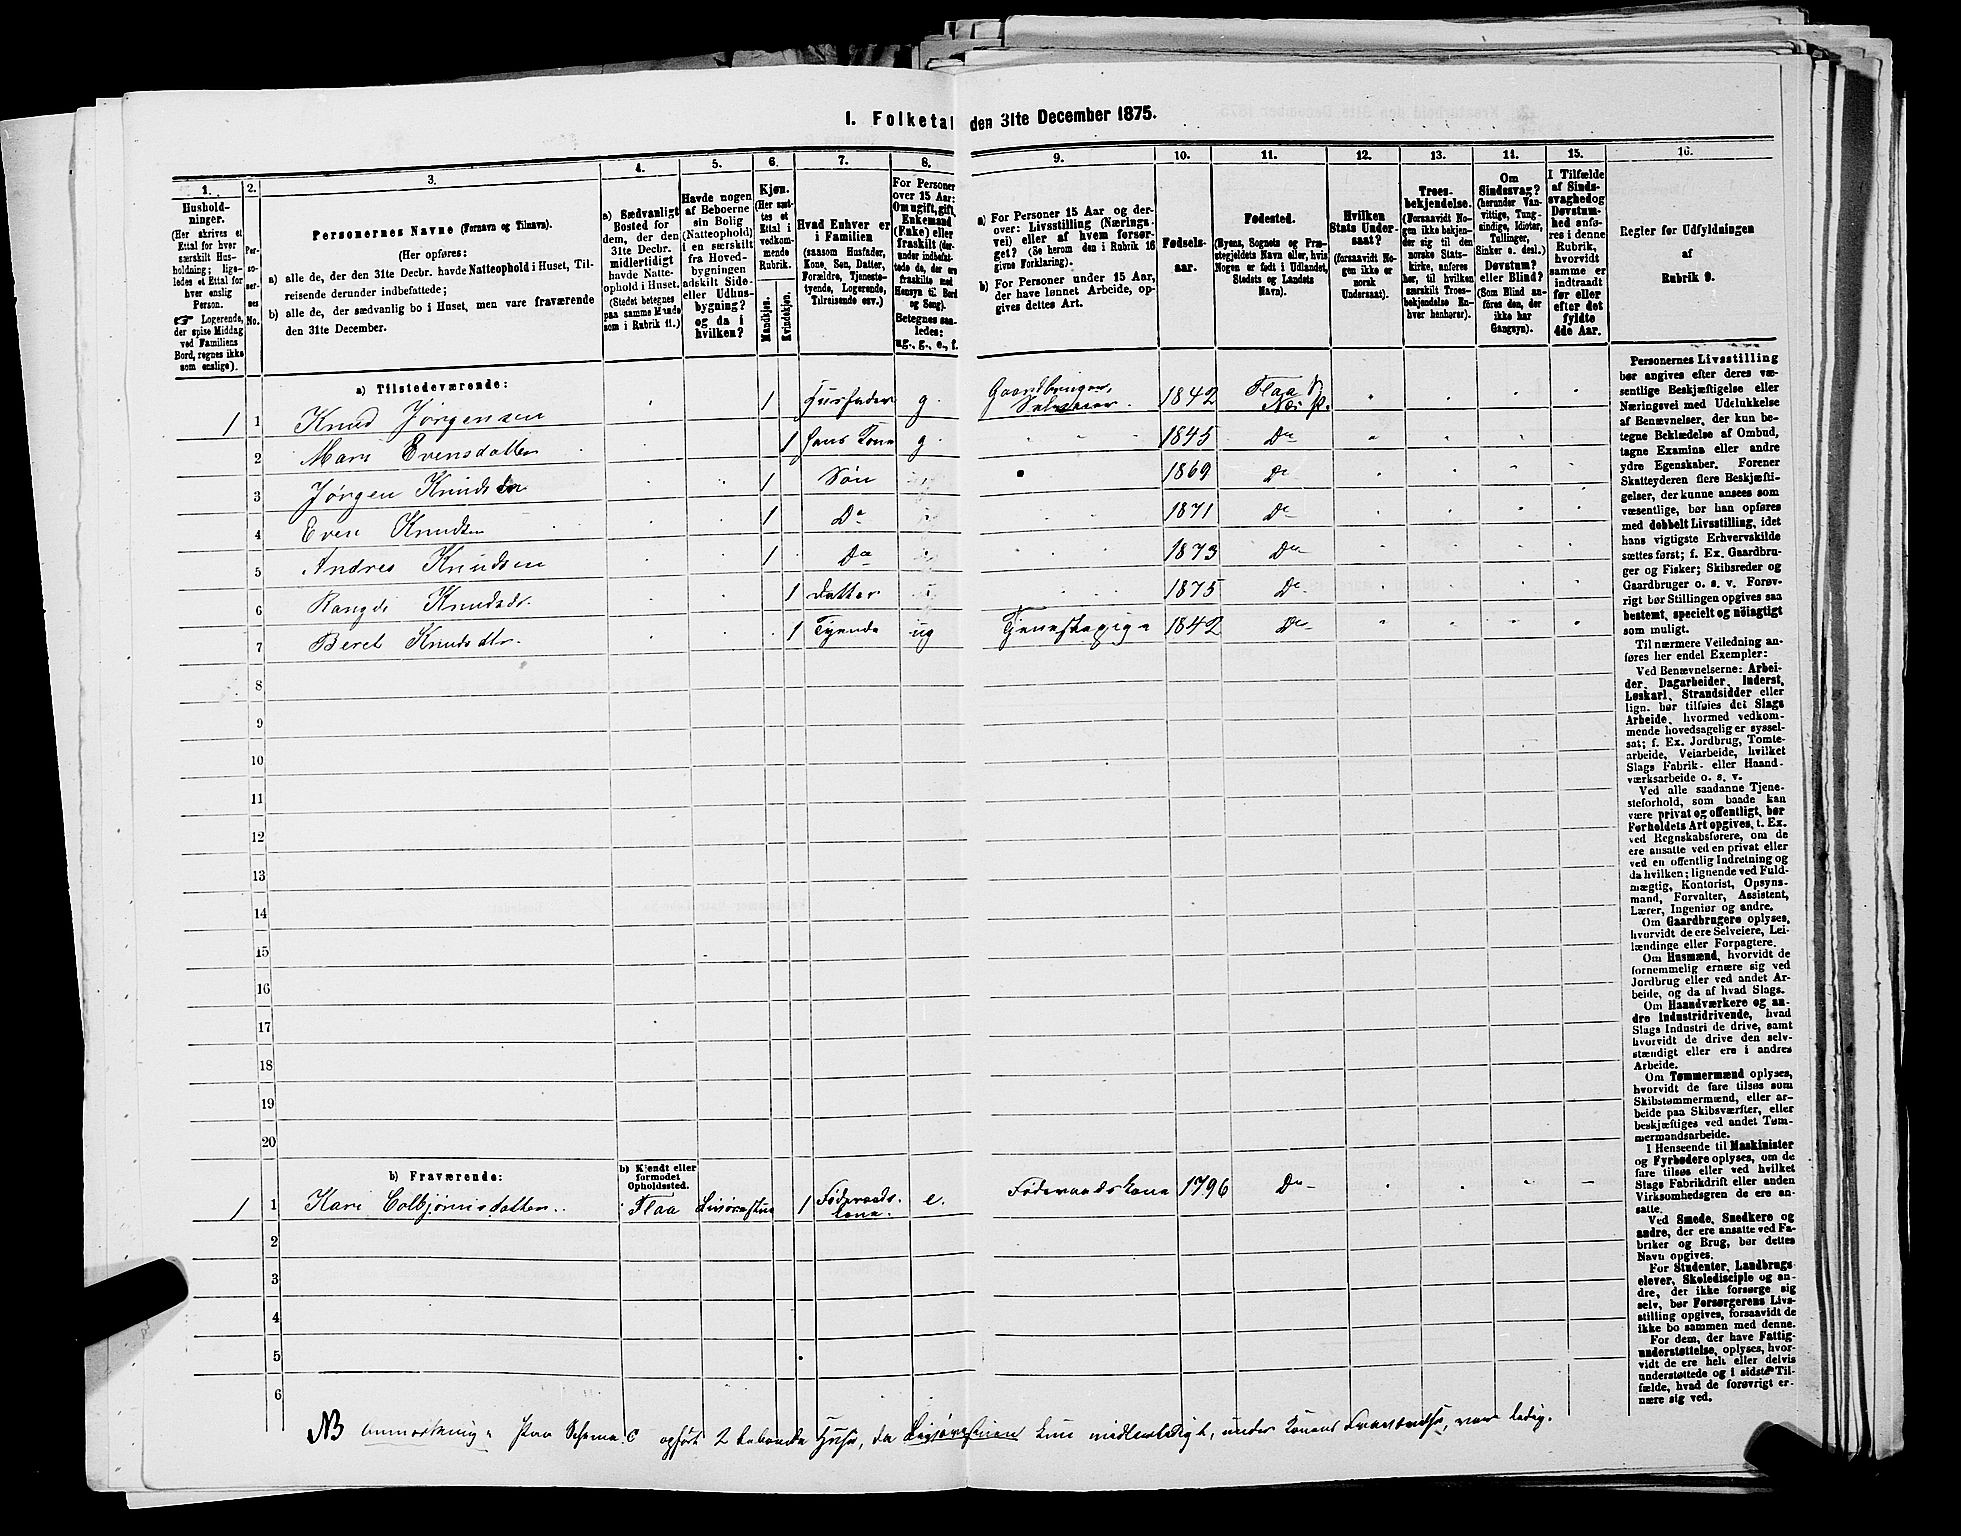 I. Folketal den 31te December 1875.
1.
Hushold-
ninger.
(Her skrives et
Ettal for hver
særskilt Hus-
holdning; lige-
ledes et Ettal for
hver enslig
Person.
☞ Logerende,
der spise Middag
ved Familiens
Bord, regnes ikke
som enslige).
2.
Per-
so-
ner-
nes
No.
3.
Personernes Navne (Fornavn og Tilnavn).
(Her opføres:
a) alle de, der den 31te Decbr. havde Natteophold i Huset, Til-
reisende derunder indbefattede;
b) alle de, der sædvanlig bo i Huset, men vare fraværende
den 31te December.
4.
a) Sædvanligt
Bosted for
dem, der den
31te Decbr.
midlertidigt
havde Natte-
ophold i Huset.
(Stedet betegnes
paa samme Maade
som i Rubrik 11.)
5.
Havde nogen
af Beboerne
sin Bolig
(Natteophold)
i en særskilt
fra Hoved-
bygningen
adskilt Side-
eller Udhus-
bygning?
og da i
hvilken?
6.
Kjøn.
(Her sæt-
tes et
Ettal i
vedkom-
mende
Rubrik.
Mandkjøn.
Kvindekjøn.
7.
Hvad Enhver er
i Familien
(saasom Husfader,
Kone, Søn, Datter,
Forældre, Tjeneste-
tyende, Logerende,
Tilreisende osv.)
8.
For Personer
over 15 Aar:
Om ugift, gift,
Enkemand
(Enke) eller
fraskilt (der-
under indbefat-
tede de, der ere
fraskilte med
Hensyn til Bord
og Seng).
Betegnes saa-
ledes:
ug., g., e., f.
9.
a) For Personer 15 Aar og der-
over: Livsstilling (Nærings-
vei) eller af hvem forsør-
get? (Se herom den i Rubrik 16
givne Forklaring).
b) For Personer under 15 Aar,
der have lønnet Arbeide, op-
gives dettes Art.
10.
Fødsels-
aar.
11.
Fødested.
(Byens, Sognets og Præ-
stegjeldets Navn eller, hvis
Nogen er født i Udlandet,
Stedets og Landets
Navn).
12.
Hvilken
Stats Under-
saat?
(forsaavidt No-
gen ikke er
norsk
Undersaat).
13.
Troes-
bekjendelse.
(Forsaavidt No-
gen ikke bekjen-
der sig til den
norske Stats-
kirke, anføres
her, til hvilken
særskilt Troes-
bekjendelse En-
hver henhører).
14.
Om
Sindssvag?
(herunder Van-
vittige, Tung-
sindige, Idioter,
Tullinger,
Sinker o. desl.)
Døvstum?
eller Blind?
(Som Blind an-
føres den, der
ikke har
Gangsyn).
15.
I Tilfælde
af Sinds-
svaghed og
Døvstum-
hed anfø-
res i denne
Rubrik,
hvorvidt
samme er
indtraadt
før eller
efter det
fyldte
4de Aar.
16.
Regler for Udfyldningen
af
Rubrik 9.
a) Tilstedeværende:
1 1 Knud Jørgensen 1 Husfader g. Gaardbruger, Selveier. 1842 Flaa S. Næs P.
2 Mari Evensdatter 1 hans Kone g 1845 Do
3 Jørgen Knudsen 1 Søn 1869 Do
4 Even Knudsen 1 Do 1871 Do
5 Andres Knudsen 1 Do 1873 Do
6 Rangdi Knudsdr. 1 Datter 1875 Do
7 Beret Knudsdtr. 1 Tyende ug Tjenestepige 1842 Do
8
9
10
11
12
13
14
15
16
17
18
19
20
b) Fraværende:
b) Kjendt eller
formodet
Opholdssted.
1 1 Kari Colbjørnsdatter. Flaa Livørestue 1 Føderaads- kone. e. Føderaadskone 1796 Do
2
3
4
5
6
NB anmerkning: Paa Schema C opført 2 beboede Huse, da Livørestuen kun midlertidigt, under Konens Fraværelse, var ledig.
Personernes Livsstilling
bør angives efter deres væ-
sentlige Beskjæftigelse eller
Næringsvei med Udelukkelse
af Benævnelser, der kun be-
tegne Beklædelse af Ombud,
tagne Examina eller andre
ydre Egenskaber. Forener
Skatteyderen flere Beskjæfti-
gelser, der kunne ansees som
væsentlige, bør han opføres
med dobbelt Livsstilling, idet
hans vigtigste Erhvervskilde
sættes først; f. Ex. Gaardbru-
ger og Fisker; Skibsreder og
Gaardbruger o. s. v. Forøv-
rigt bør Stillingen opgives saa
bestemt, specielt og nöiagtigt
som muligt.
Til nærmere Veiledning an-
føres her endel Exempler:
Ved Benævnelserne: Arbei-
der, Dagarbeider, Inderst,
Løskarl, Strandsidder eller
lign. bør tilføies det Slags
Arbeide, hvormed vedkom-
mende hovedsagelig er syssel-
sat; f. Ex. Jordbrug, Tomte-
arbeide, Veiarbeide, hvilket
Slags Fabrik- eller Haand-
værksarbeide o. s. v.
Ved alle saadanne Tjene-
steforhold, som baade kan
være privat og offentligt, bør
Forholdets Art opgives, t. Ex.
ved Regnskabsførere, om de
ere ansatte ved en privat eller
ved en offentlig Indretning og
da hvilken; lignende ved Fuld-
mægtig, Kontorist, Opsyns-
mand, Forvalter, Assistent,
Lærer, Ingeniør og andre.
Om Gaardbrugere oplyses,
hvorvidt de ere Selveiere, Lei-
lændinge eller Forpagtere.
Om Husmænd, hvorvidt de
fornemmelig ernære sig ved
Jordbrug eller ved andet Ar-
beide, og da af hvad Slags.
Om Haandværkere og an-
dre Industridrivende, hvad
Slags Industri de drive, samt
hvorvidt de drive den selv-
stændigt eller ere i andres
Arbeide.
Om Tømmermænd oplyses,
hvorvidt de fare tilsøs som
Skibstømmermænd, eller ar-
beide paa Skibsværfter, eller
beskjæftiges ved andet Tøm-
mermandsarbeide.
I Henseende til Maskinister
og Fyrbødere oplyses, om de
fare tilsøs eller ved hvilket
Slags Fabrikdrift eller anden
Virksomhedsgren de ere an-
satte.
Ved Smede, Snedkere og
andre, der ere ansatte ved Fa-
briker og Brug, bør dettes
Navn opgives.
For Studenter, Landbrugs
elever, Skoledisciple og an-
dre, der ikke forsørge sig
selv, bør Forsørgerens Livs-
stilling opgives, forsaavidt de
ikke bo sammen med denne.
For dem, der have Fattig-
understøttelse, oplyses, hvor-
vidt de ere helt eller delvis
understøttede og i sidste Til-
fælde, hvad de forøvrigt er-
nære sig ved.